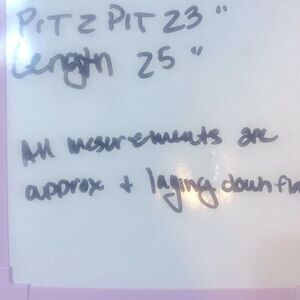 PiT 2 PiT 23"
Length 25"
All mesurements are
approx + laying down fla